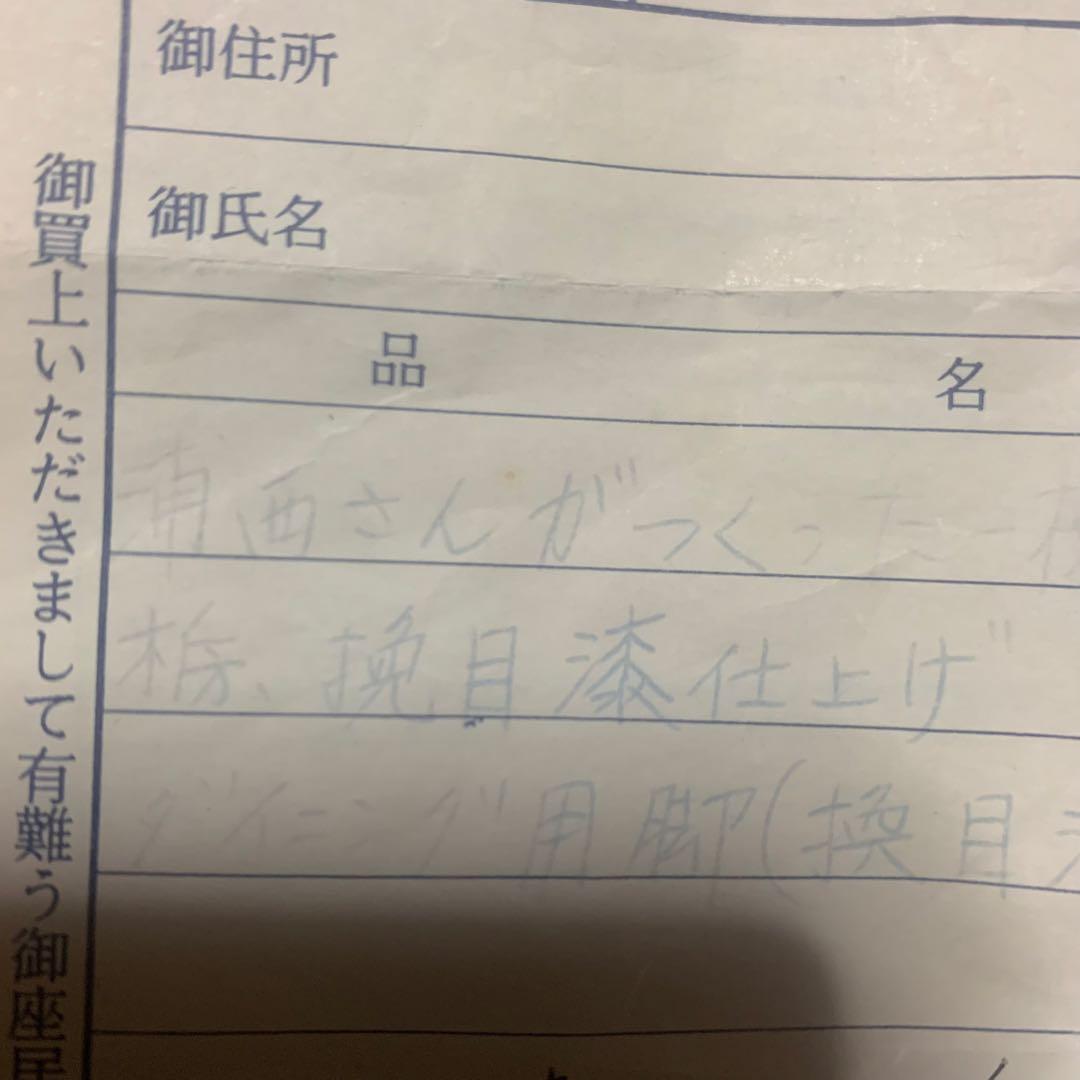 御住所
御氏名
品名
西さんがつくった一
栃、挽目漆仕上げ
ダイニング用脚(換目
御買上いただきまして有難う御座